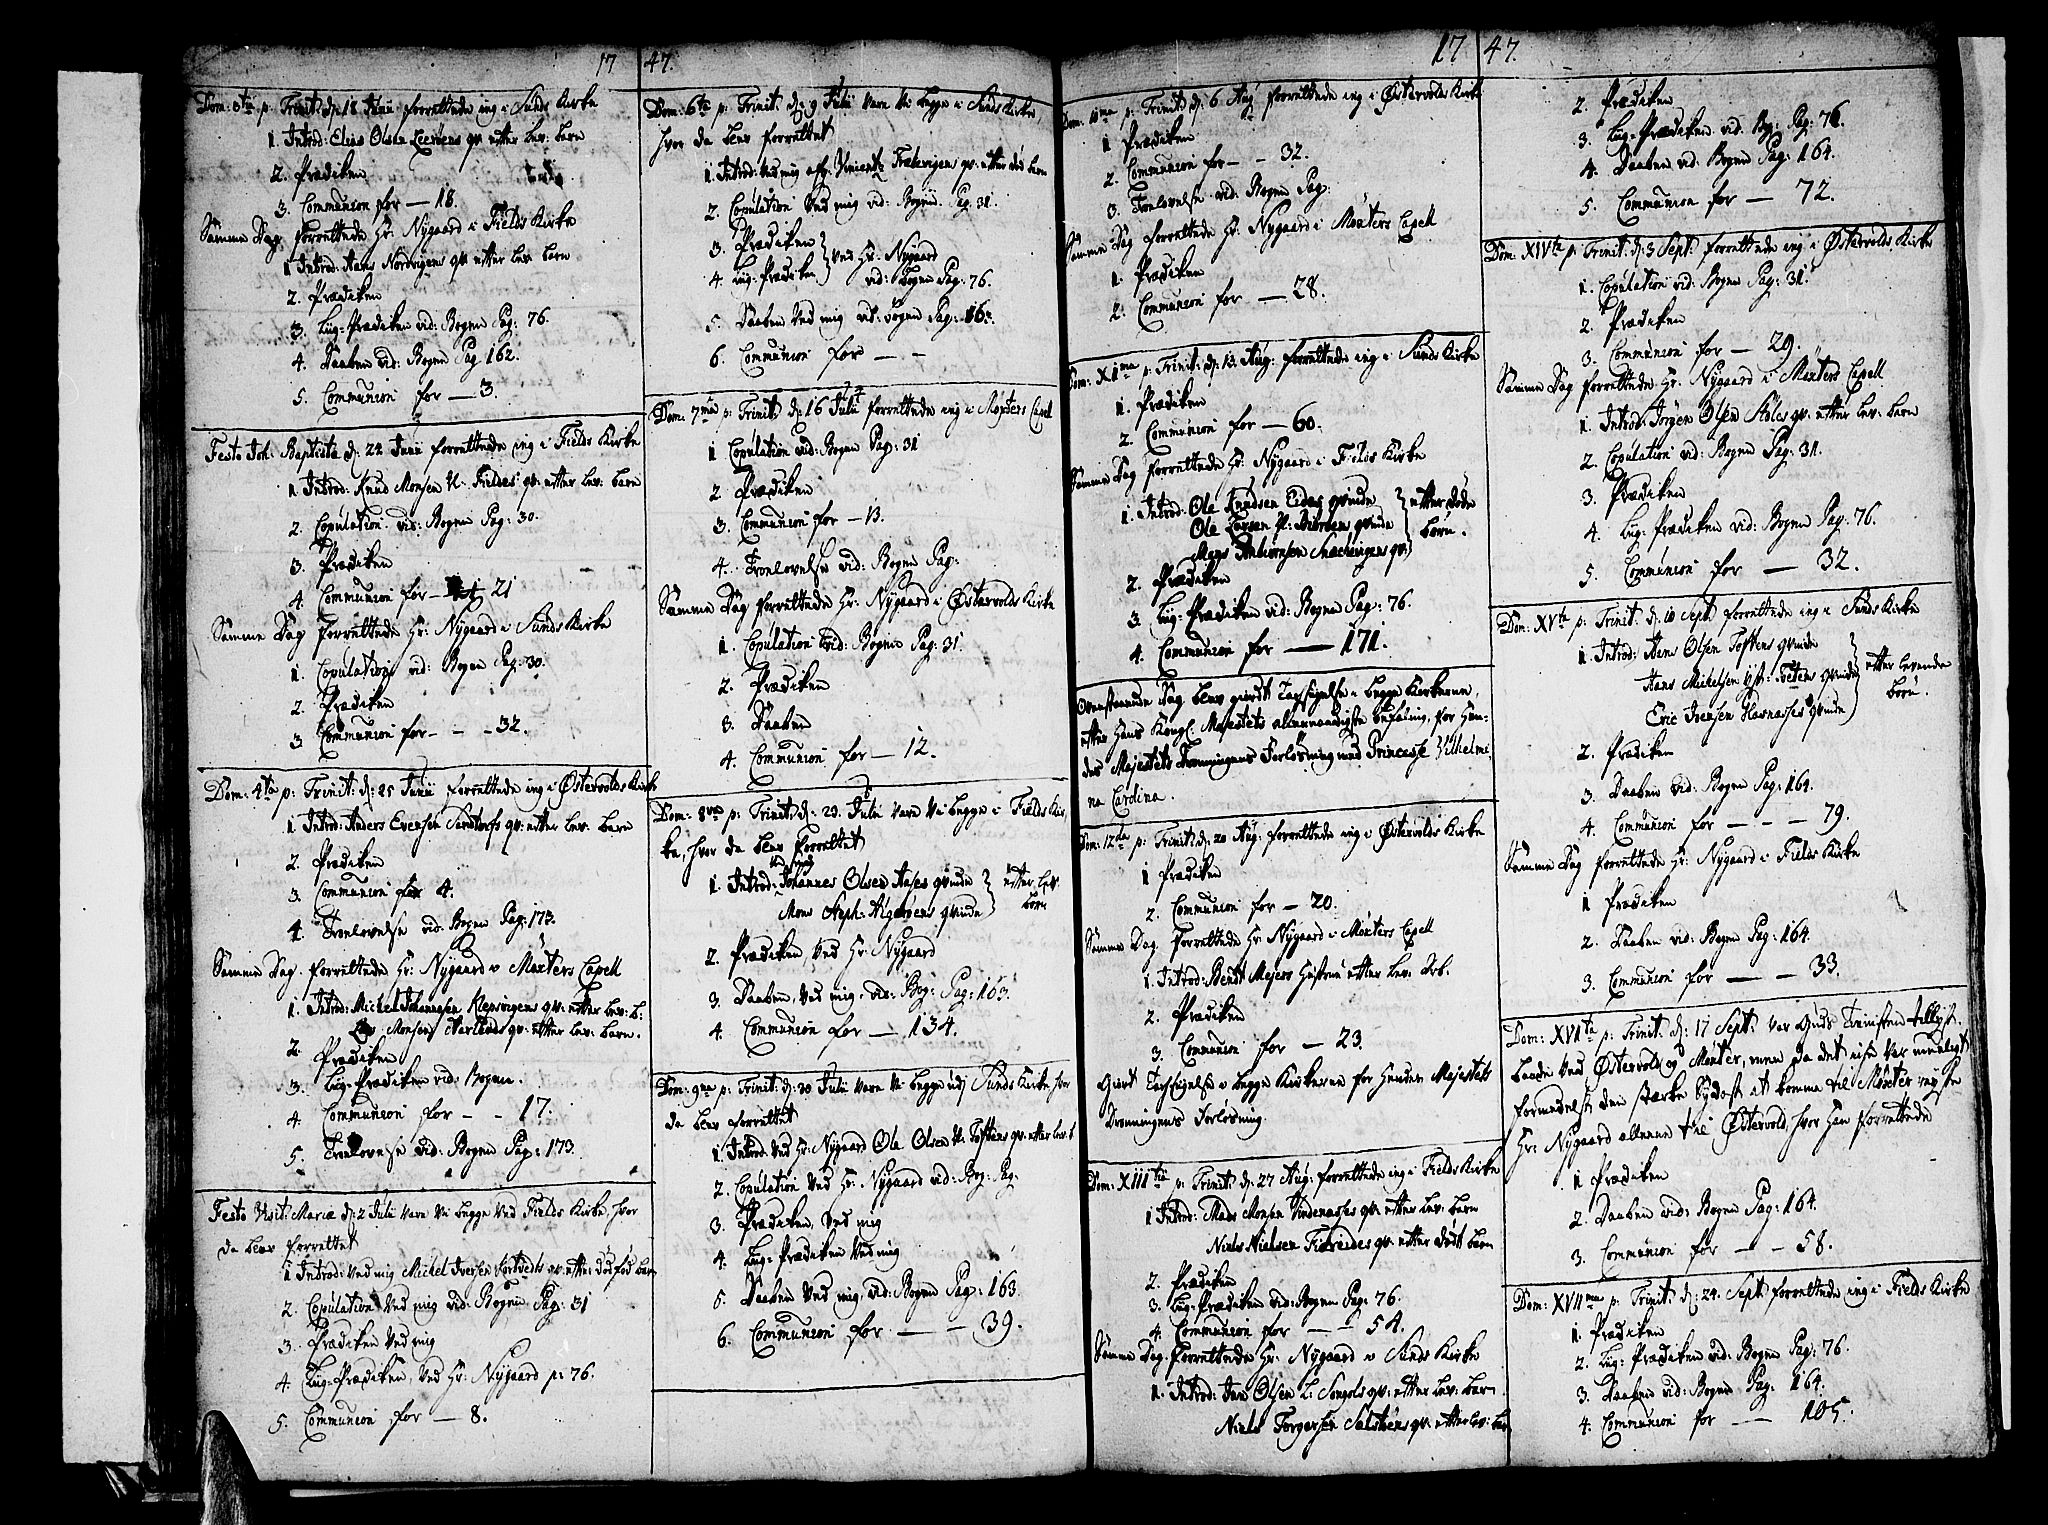 17
47.
Dom: 3tia p: Trinit: d: 18 Junii forrettede ieg i Sunds Kirke
1. Introd: Elias Olsen Leeröens qv: etter lev: barn
2. Prædiken
3. Communion for — 18.
Samme Dag forrettede Hr: Nygaard i Fields Kirke
1 Introd: Hans Nordvigens qv: etter lev: barn
2. Prædiken
3. Lig-Prædiken vid: Bogen Pag: 76.
4. Daaben vid: Bogen Pag 162.
5. Communion for — 3.
Festo Joh: Baptistæ d: 24 Junii forrettede ieg i Fields Kirke
1. Introd: Knud Monsen N: Fieldes qv: etter lev: barn
2. Copulation vid: Bogen Pag: 30.
3. Prædiken
4. Communion for — 21
Samme Dag forrettede Hr: Nygaard i Sunds Kirke
1. Copulation vid: Bogen Pag: 30.
2. Prædiken
3 Communion for - - - 32.
Dom: 4ta p: Trinit: d: 25 Junii forrettede ieg i Østervolds Kirke
1 Introd: Anders Evensen Sandtorfs qv: etter lev: barn
2. Prædiken
3 Communion for 4.
4. Trolovelse vid: Bogen Pag: 173.
Samme Dag forrettede Hr: Nygaard i Møxters Capell
1. Introd: Michel Johannesen Klepsvigens qv: etter lev: b:
Monsen Navlens qv: etter lev: barn.
2. Prædiken
3. Lig-Prædiken vid: Bogen.
4 Communion for - - 17.
5. Trolovelse vid: Bogen Pag: 173.
Festo Visit: Mariæ d: 2 Julii vare vi begge ved Fields Kirke, hvor
da blev forrettet
1 Introd: ved mig Michel Iversen qv: etter dødfød barn
2. Copulation ved mig vid: Bogen Pag: 31
3. Prædiken ved mig
4. Lig-Prædiken, ved Hr: Nygaard p: 76.
5. Communion for — 8.
Dom: 6ta p: Trinit: d: 9 Julii vare vi begge i Sunds Kirke,
hvor da blev forrettet
1. Introd: ved mig Vincents Trælevigens qv: etter död barn
2. Copulation ved mig vid: Bogen Pag 31.
3. Prædiken
4. Lig-Prædiken } ved Hr: Nygaard
vid: Bogen Pag: 76.
5. Daaben ved mig vid: Bogen Pag: 163.
6. Communion for — -
Dom: 7ma p: Trinit: d: 16 Julii forrettede ieg i Møxters Capel
1 Copulation vid: Bogen Pag: 31
2 Prædiken
3. Communion for — 13.
4. Trolovelse vid: Bogen Pag:
Samme Dag forrettede Hr: Nygaard i Østervolds Kirke
1. Copulation vid: Bogen Pag: 31.
2. Prædiken
3. Daaben
4. Communion for — 12.
Dom: 8va p: Trinit: d: 23. Julii vare vi begge i Fields Kir-
ke, hvor da blev forrettet
ved mig
1. Introd: Johannes Olsen Aases qvinde
Mons Steph: Algeröens qvinde } etter lev:
børn
2. Prædiken, ved Hr: Nygaard
3. Daaben, ved mig, vid: Bog: Pag: 163.
4. Communion for — 134.
Dom: 9na p: Trinit: d: 30 Julii vare vi begge ved Sunds Kirke hvor
da blev forrettet
1. Introd: ved Hr: Nygaard Ole Olsen N: Toftens qv: etter lev: b
2. Copulation ved Hr: Nygaard vid: Bog: Pag:
3. Prædiken, ved mig
4. Lig-Prædiken ved mig
5. Daaben ved mig, vid: Bogen Pag: 163.
6. Communion for — — 39.
17
47.
Dom: 10ma p: Trinit: d: 6 Aug forrettede ieg i Østervolds Kirke
1 Prædiken
2. Communion for — - 32.
3. Trolovelse vid: Bogen Pag:
Samme Dag forrettede Hr: Nygaard i Møxters Capell
1. Prædiken
2. Communion for — 28.
Dom: XIma p: Trinit: d: 13. Aug: forrettede ieg i Sunds Kirke
1. Prædiken
2. Communion for — 60.
Samme Dag forrettede Hr: Nygaard i Fields Kirke
1. Introd: Ole Knudsen Eides qvinde
Ole Larsen qvinde
Mogs Andersen qv: } etter døde
børn.
2. Prædiken
3. Lig-Prædiken vid: Bogen Pag: 76.
4. Communion for — 171.
Ovenstaaende Dag blev giordt Tacksigelse i begge Kirkerne,
etter Hans Kongl: Majestets allernaadigste befaling, for Hen-
des Majestets Dronningens Forlösning med Princesse Vilhelmi-
na Carolina.
Dom: 12ta p: Trinit: d: 20 Aug: forrettede ieg i Østervolds Kirke
1 Prædiken
2. Communion for — 20.
Samme Dag forrettede Hr: Nygaard i Møxters Capell
1. Introd: Bendt Mejers Hustrue etter lev: Drb.
2. Prædiken
3. Communion for — 23.
Giort Tacksigelse i begge Kirkerne for Hendes Majestets
Dronningens Forlösning
Dom: XIIItia p: Trinit: d: 27 Aug: forrettede ieg i Fields Kirke
1 Introd: Mads Monsen Vindenesses qv: etter lev: barn
Niels Nielsen Fielveides qv: etter dødt barn
2. Prædiken
3. Lig-Prædiken vid: Bogen Pag: 76.
4. Communion for — - 54.
Samme Dag forrettede Hr: Nygaard i Sunds Kirke
1. Introd: Jan Olsen L: Songols qv: etter lev: barn
Niels Torgersen qv: etter lev: barn
2. Prædiken
3. Lig-Prædiken vid: Bog: Pag: 76.
4. Daaben vid: Bogen Pag: 164.
5. Communion for — 72.
Dom: XIVta p: Trinit: d: 3 Sept: forrettede ieg i Østervolds Kirke
1. Copulation vid: Bogen Pag: 31.
2. Prædiken
3. Communion for — 29.
Samme Dag forrettede Hr: Nygaard i Møxters Capell
1. Introd: Jörgen Olsen Stoles qv: etter lev: barn
2. Copulation vid: Bogen Pag: 31.
3. Prædiken
4. Lig-Prædiken vid: Bogen Pag: 76.
5. Communion for — 32.
Dom: XVta p: Trinit: d: 10 Sept: forrettede ieg i Sunds Kirke
1. Introd: Hans Olsen Toftens qvinde
Hans Michelsen Tvetens qvinde
Eric Ivensen Havnasses qvinde } etter levende
børn.
2. Prædiken
3. Daaben vid: Bogen Pag: 164.
4. Communion for — — - 79.
Samme Dag forrettede Hr: Nygaard i Fields Kirke
1 Prædiken
2. Daaben vid: Bogen Pag: 164.
3. Communion for — — 33.
Dom: XVIta p: Trinit: d: 17 Sept: var Guds Tienisten tillyst
baade ved Østervold og Møxter, men da det ikke var mueligt
formedelst den stærke Sydost at komme til Møxter rejste
Hr: Nygaard allene til Østervold, hvor han forrettede
1 Prædiken
2. Daaben vid: Bogen Pag: 164.
3. Communion for — - 58.
Dom: XVIIma p: Trinit: d: 24. Sept: forrettede ieg i Fields Kirke
1. Prædiken
2. Lig-Prædiken vid: Bogen Pag: 76.
3. Daaben vid: Bogen Pag: 164.
4. Communion for — 105.